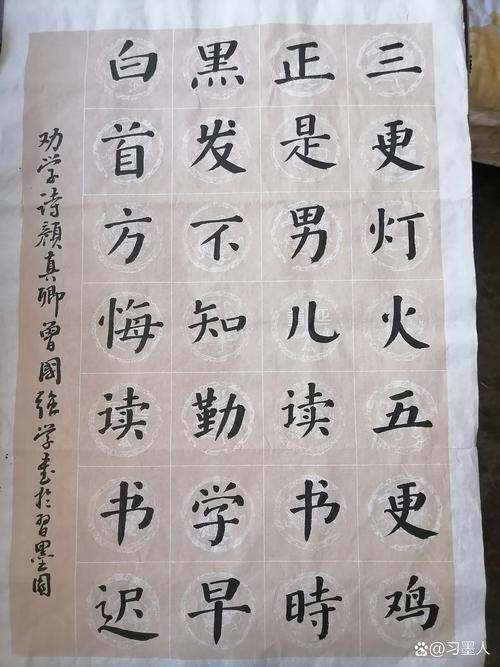 三更灯火五更鸡
正是男儿读书時
黑发不知勤学早
白首方悔读书迟
劝学诗颜真卿曾國强学書於習墨园
@习墨人